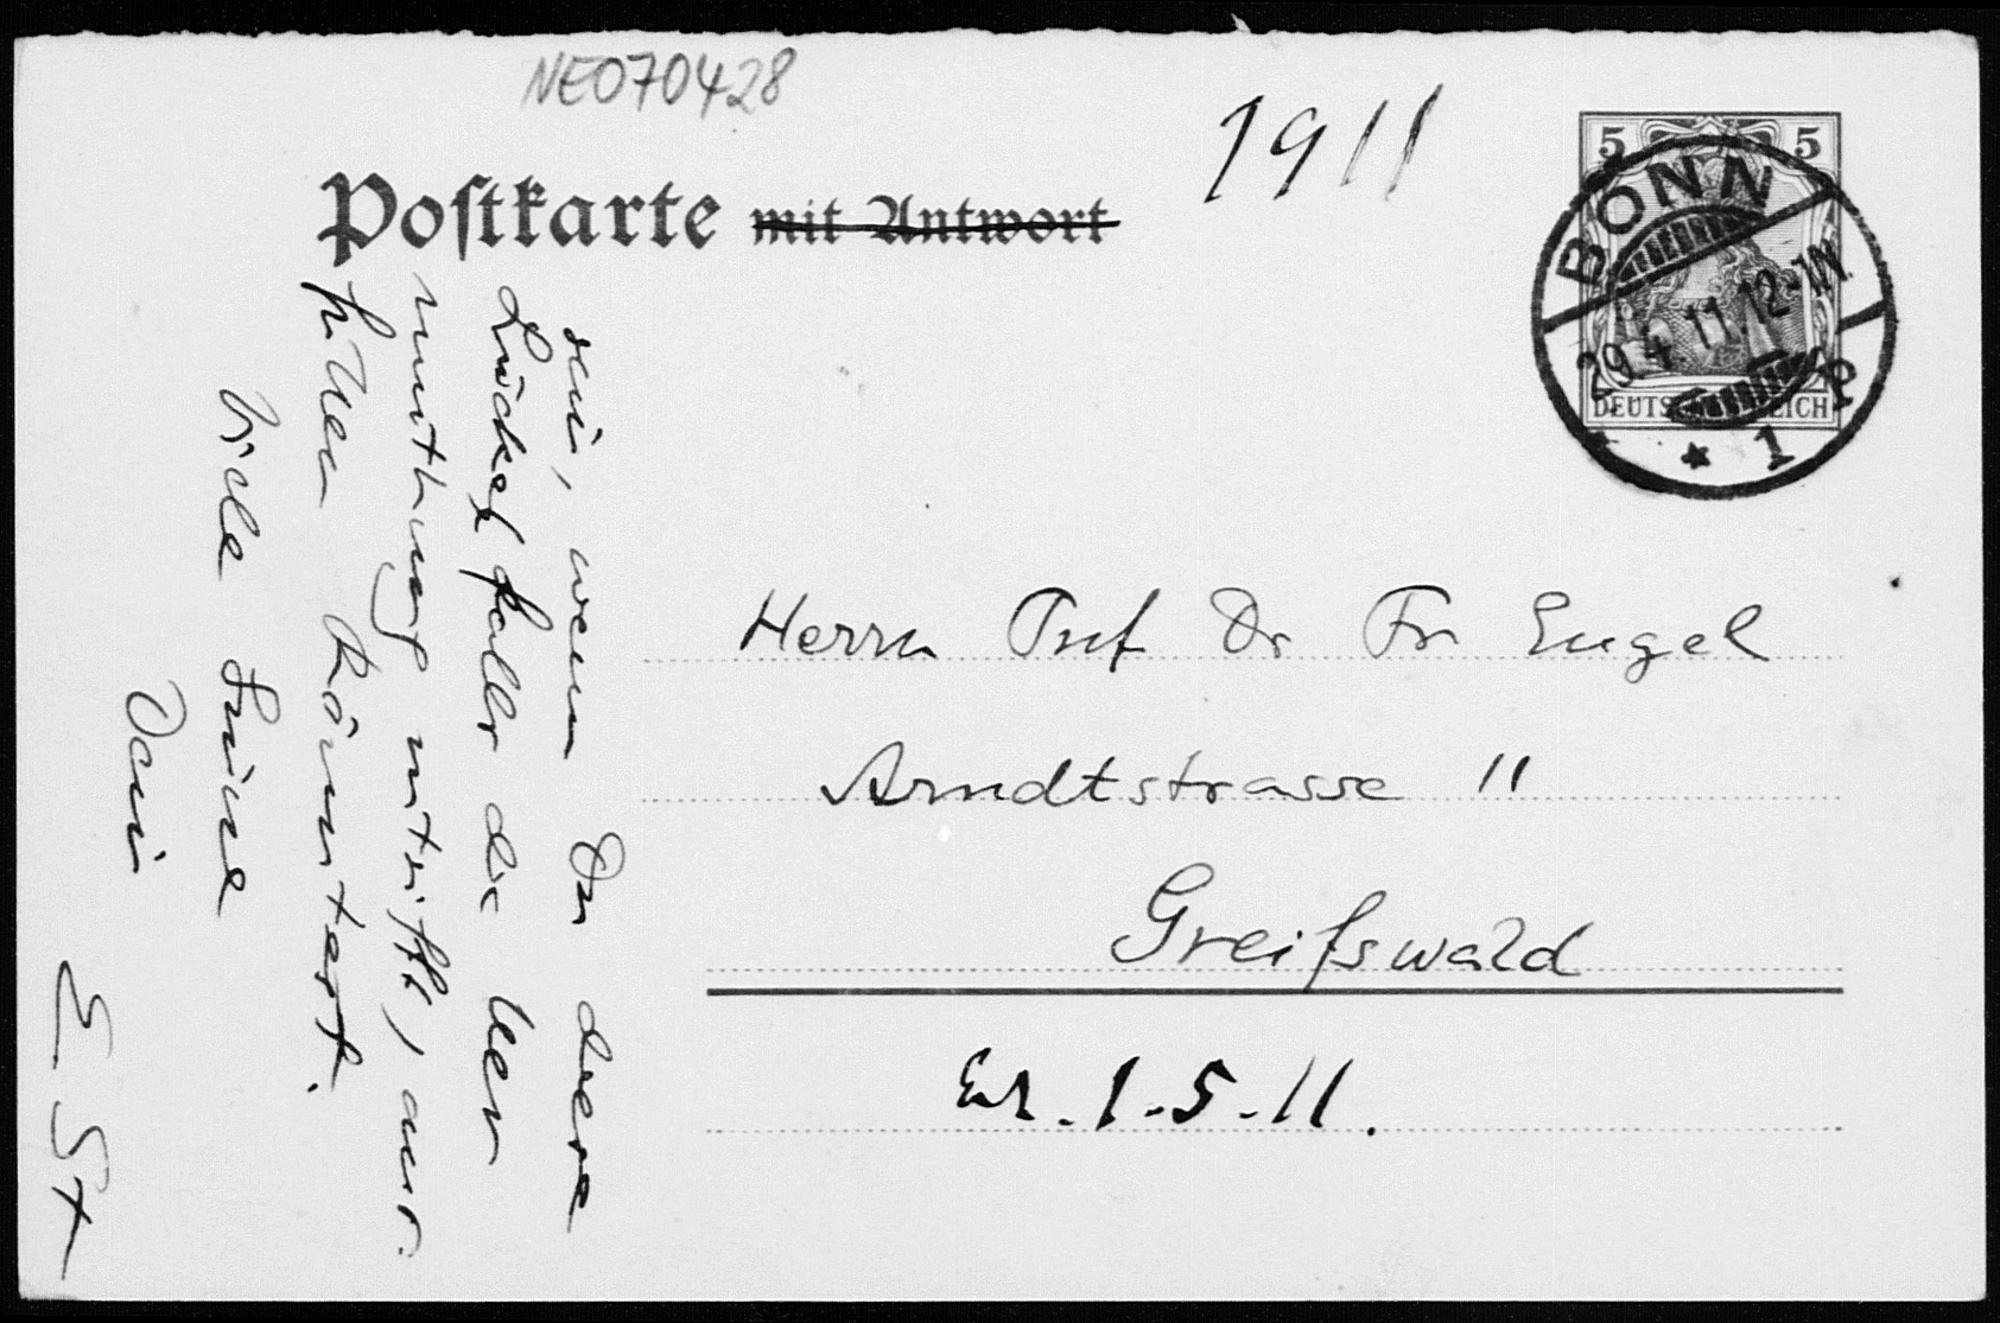 NE070428
1911
Postkarte mit Antwort
5 5
BONN
29.4.11.12-1N.
* 1 P
DEUTSCHES REICH
Herrn Prof Dr Fr Engel
Arndtstrasse 11
Greifswald
Er. 1.5.11.
sein, wenn Du diese
Lücke, falls die Ver
mutung zutrifft, aus-
füllen könntest.
Viele Grüsse
Dein
E St